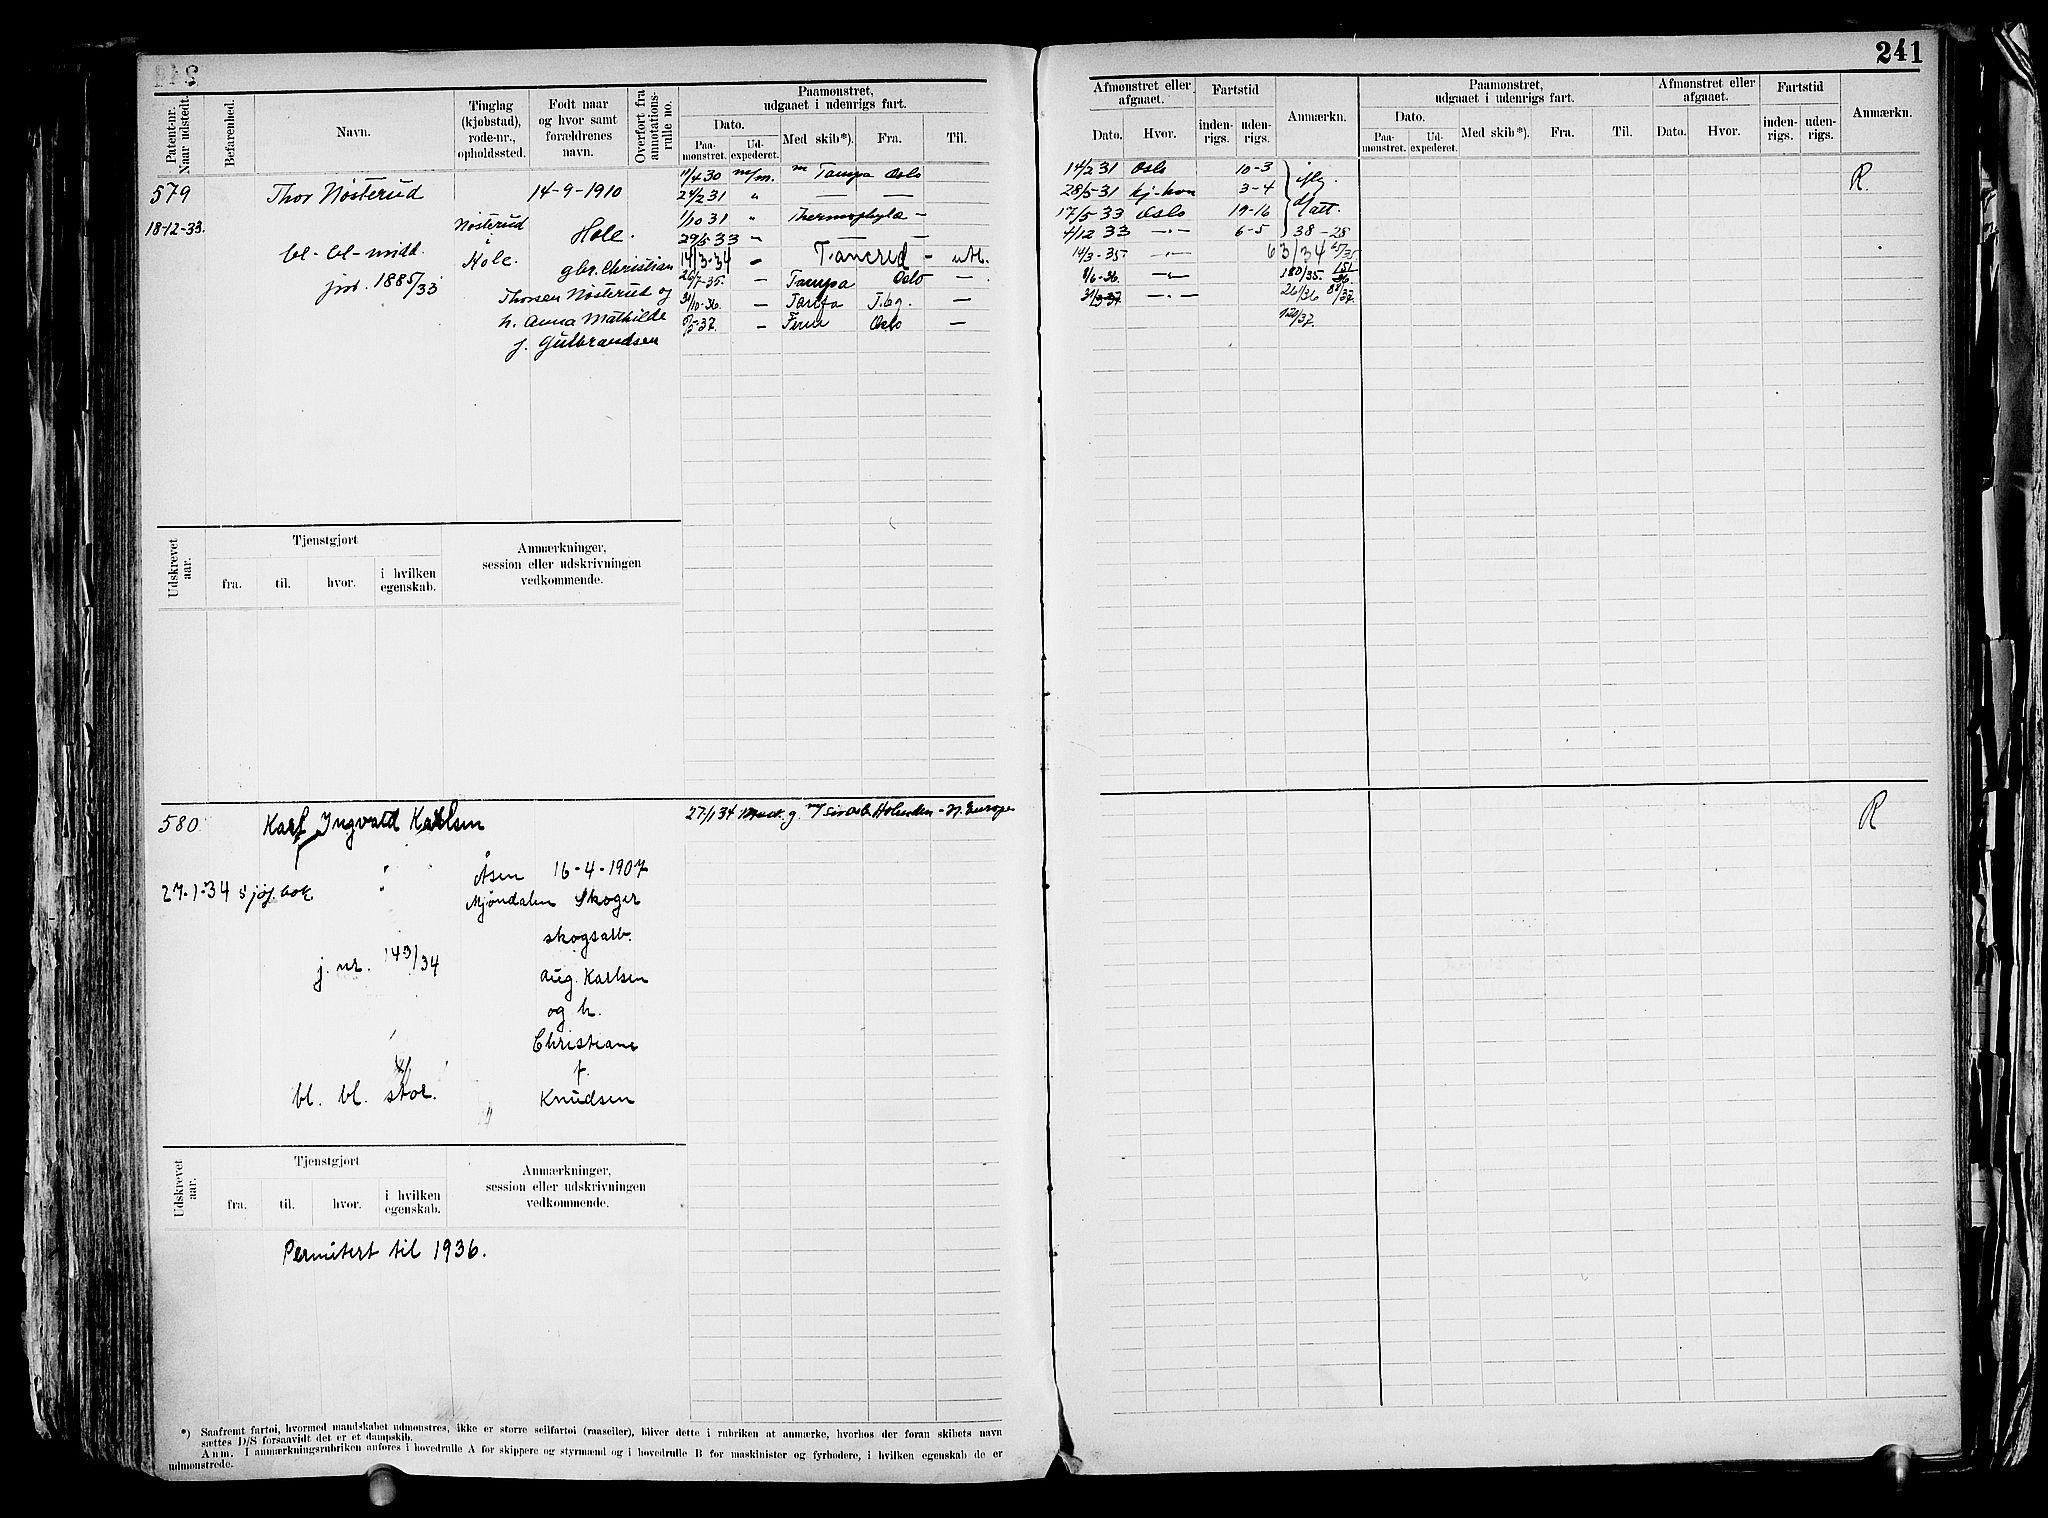 241
Patent-nr. Naar udstedt.
Befarenhed.
Navn.
Tinglag (kjøbstad), rode-nr., opholdssted.
Født naar og hvor samt forældrenes navn.
Overført fra annotations-rulle no.
Paamønstret, udgaaet i udenrigs fart.
Dato.
Paa-mønstret.
Ud-expederet.
Med skib*).
Fra.
Til.
Afmønstret eller afgaaet.
Dato.
Hvor.
Fartstid
inden-rigs.
uden-rigs.
Anmærkn.
Paamønstret, udgaaet i udenrigs fart.
Dato.
Paa-mønstret.
Ud-expederet.
Med skib*).
Fra.
Til.
Afmønstret eller afgaaet.
Dato.
Hvor.
Fartstid
inden-rigs.
uden-rigs.
Anmærkn.
579 Thor Nøsterud 14-9-1910
18-12-33. Nøsterud Hole.
bl-bl-midd. Hole. gbr. Christian
jrn. 1885/33 Thorsen Nøsterud og
h. Anna Mathilde
f. Gulbrandsen
11/4 30 m/m. m Tampa Oslo
24/2 31 " — —
1/10 31 " Thermopylæ —
29/5 33 " — —
14/3-34 — Tancred — utl.
26/7-35. — Tampa Oslo —
31/10-36. — Tarifa T.bg. —
5/5-37. — Fernr Oslo —
14/2 31 Oslo 10-3
28/5 31 Kj-hvn 3-4
17/5 33 Oslo 19-16 att.
4/12 33 —"— 6-5 38-28
14/3-35. —"— 63/34
8/6-36. —"— 180/35.
31/3-37 —"— 261/36
R.
Udskrevet aar.
Tjenstgjort
fra.
til.
hvor.
i hvilken egenskab.
Anmærkninger,
session eller udskrivningen
vedkommende.
580 Karl Ingvald Karlsen
27/1 34 m/ Holmestr. - Europa
R
Åsen 16-4-1907
27-1-34 sjøf.bok Mjøndalen Skoger
skogsarb.
j. nr. 143/34 Aug. Karlsen
og h.
Christiane
f.
bl. bl. stor. Knudsen
Udskrevet aar.
Tjenstgjort
fra.
til.
hvor.
i hvilken egenskab.
Anmærkninger,
session eller udskrivningen
vedkommende.
Permitert til 1936.
*) Saafremt fartøi, hvormed mandskabet udmønstres, ikke er større seilfartøi (raaseiler), bliver dette i rubriken at anmærke, hvorhos der foran skibets navn
sættes D/S forsaavidt det er et dampskib.
Anm. I anmærkningsrubriken anføres i hovedrulle A for skippere og styrmænd og i hovedrulle B for maskinister og fyrbødere, i hvilken egenskab de er
udmønstrede.